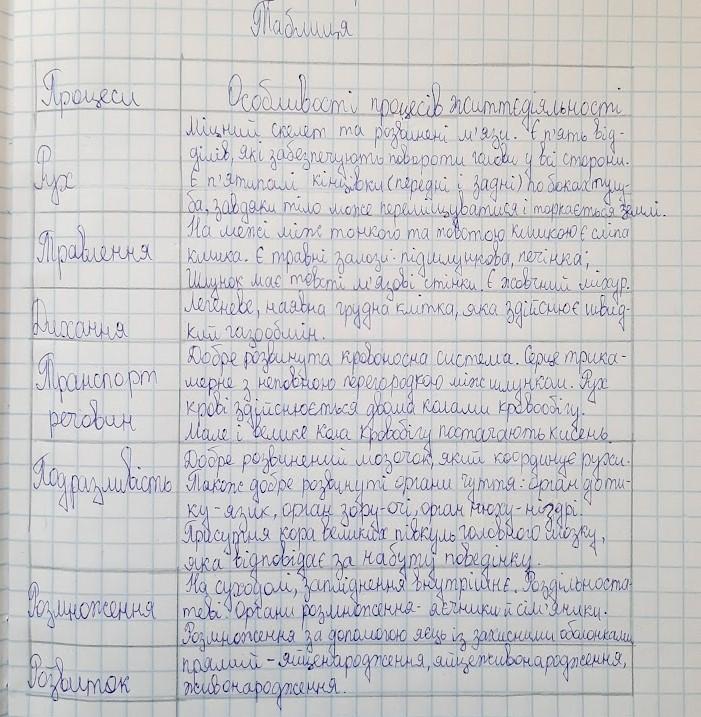 Таблиця
Процеси
Особливості процесів життєдіяльності
Рух
Міцний скелет та розвинені м'язи. Є п'ять від-
ділів, які забезпечують повороти голови у всі сторони.
Є п'ятипалі кінцівку (передні і задні) по боках тулу-
ба, завдяки тіло може переміщуватися і торкається землі.
Травлення
На межі між тонкого та товстою кишкою є сліпа
кишка. Є травні залози - підшлункова, печінка;
Шлунок має товсті м'язові стінки. Є жовчний міхур.
Дихання
Легеневе, наявна грудна клітка, яка здійснює швид-
кий газообмін.
Транспорт
речовин
Добре розвинута кровоносна система. Серце трика-
мерне з неповною перегородкою між шлунком. Рух
крові здійснюється двома колами кровообігу.
Мале і велике кола кровобігу постачають кисень.
Подразливість
Добре розвинений мозочок, який координує рухи.
Також добре розвинуті органи чуття: орган доти-
ку - язик, орган зору - очі, орган нюху - ніздрі.
Присутня кора великих півкуль головного мозку,
яка відповідає за набуту поведінку.
Розмноження
На суходолі, запліднення внутрішнє. Роздільноста-
теві. Органи розмноження - яєчники й сім'яники.
Розмноження за допомогою яєць із захисними оболонками
Розвиток
прямий - яйценародження, яйцеживонародження,
живонародження.